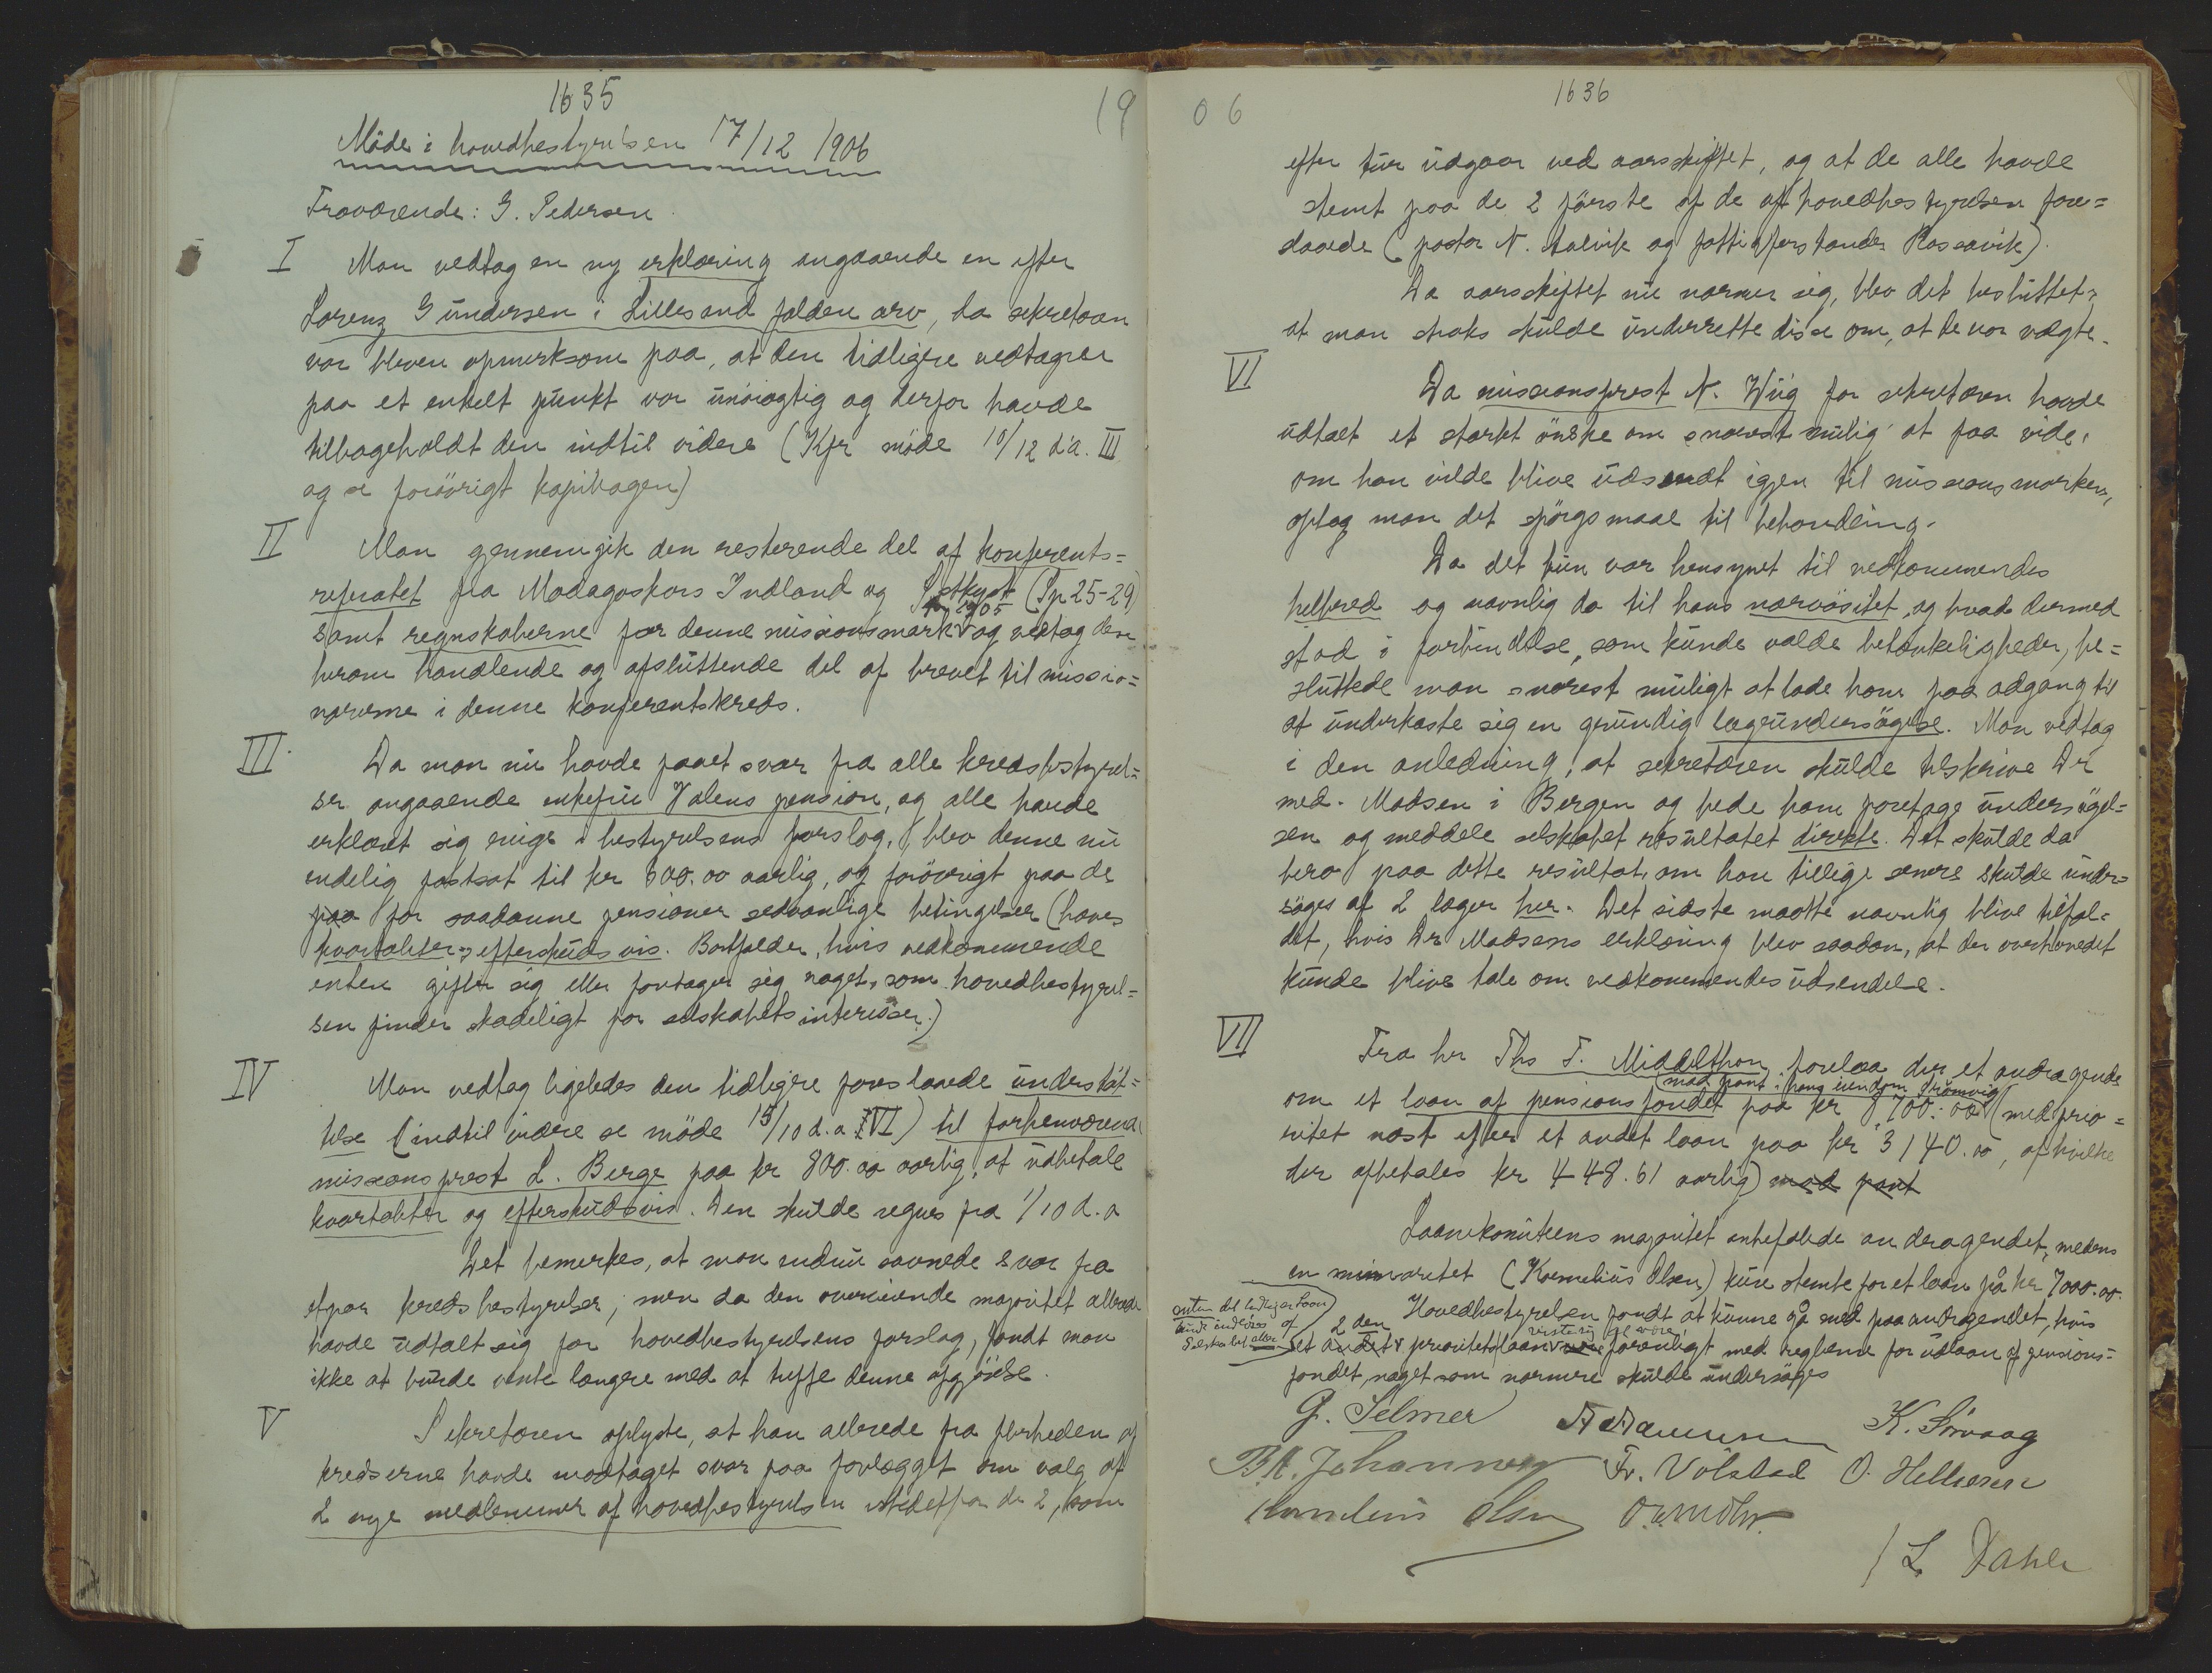 1635
19
Möde i hovedbestyrelsen 17/12 1906
Fraværende: G. Pedersen.
I Man vedtog en ny erklæring angaaende en efter
Lorenz Gundersen i Lillesand falden arv, da sekretæren
var bleven opmerksom paa, at den tidligere vedtagne
paa et enkelt punkt var unöiagtig og derfor havde
tilbageholdt den indtil videre (Kfr möde 10/12 d.a. III
og se forövrigt kopibogen)
II Man gjennemgik den resterende del af konferents=
referatet fra Madagaskars Indland og Östkyst (Sp 25-29)
for 1905
samt regnskaberne for denne missionsmark og vedtog den
herom handlende og afsluttende del af brevet til missio=
nærerne i denne konferentskreds.
III. Da man nu havde faaet svar fra alle kredsbestyrel=
ser angaaende enkefru Valens pension, og alle havde
erklæret sig enige i bestyrelsens forslag, blev denne nu
endelig fastsat til kr 800.00 aarlig, og forövrigt paa de
paa for saadanne pensioner sedvanlige betingelser (haves
kvartaliter, efterskudsvis. Bortfalder, hvis vedkommende
enten gifter sig eller foretager sig noget, som hovedbestyrel=
sen finder skadeligt for selskabets interesser.)
IV Man vedtog ligeledes den tidligere foreslaaede understöt=
telse (indtil videre se möde 15/10 d.a VI) til forhenværende
missionsprest L. Berge paa kr 800.00 aarlig, at udbetale
kvartaliter og efterskudsvis. Den skulde regnes fra 1/10 d.a
Det bemerkes, at man endnu savnede svar fra
etpar kredsbestyrelser, men da den overveiende majoritet allerede
havde udtalt sig for hovedbestyrelsens forslag, fandt man
ikke at burde vente længere med at treffe denne afgjörelse.
V Sekretæren oplyste, at han allerede fra flerheden af
kredserne havde modtaget svar paa forlægget om valg af
2 nye medlemmer af hovedbestyrelsen istedetfor de 2, som
06
1636
efter tur udgaar ved aarsskiftet, og at de alle havde
stemt paa de 2 förste af de af hovedbestyrelsen fore=
slaaede (pastor N. Aalvik og fattigforstander Rossavik).
Da aarsskiftet nu nærmer sig, blev det besluttet,
at man straks skulde underrette disse om, at de var valgte.
VI Da missionsprest N. Wiig for sekretæren havde
udtalt et stærkt önske om snarest mulig at faa vide,
om han vilde blive udsendt igjen til missionsmarken,
optog man det spörgsmaal til behandling.
Da det kun var hensynet til vedkommendes
helbred og navnlig da til hans nervösitet, og hvad dermed
stod i forbindelse, som kunde volde betænkeligheder, be=
sluttede man snarest muligt at lade ham faa adgang til
at underkaste sig en grundig lægeundersögelse. Man vedtog
i den anledning, at sekretæren skulde tilskrive Dr
med. Madsen i Bergen og bede ham foretage undersögel=
sen og meddele selskabet resultatet direkte. Det skulde da
bero paa dette resultat, om han tillige senere skulde under=
söges af 2 læger her. Det sidste maatte navnlig blive tilfæl=
det, hvis Dr Madsens erklæring blev saadan, at der overhovedet
kunde blive tale om vedkommendes udsendelse.
VII Fra hr Ths T. Middelthon forelaa der et andragende
(mod pant i hans eiendom Strömvig
om et laan af pensionsfondet paa kr 8700.00 (med prio=
ritet næst efter et andet laan paa kr 3140.00, af hvilke
der afbetales kr 448.61 aarlig) mod pant
Laanekomiteens majoritet anbefalede andragendet, medens
en minoritet (Kornelius Olsen) kun stemte for et laan på kr 7000.00.
Hovedbestyrelsen fandt at kunne gå med paa andragendet, hvis
enten det tidligere laan
kunde indlöses af
Selskabet eller
2 den
viste sig at være
et andet prioritetslaan være foreneligt med reglerne for udlaan af pensions=
fondet, noget som nærmere skulde undersöges
G. Selmer K. Sörvaag
B.A. Johannesen Fr. Völstad O. Helliesen
Kornelius Olsen
/ L. Dahle